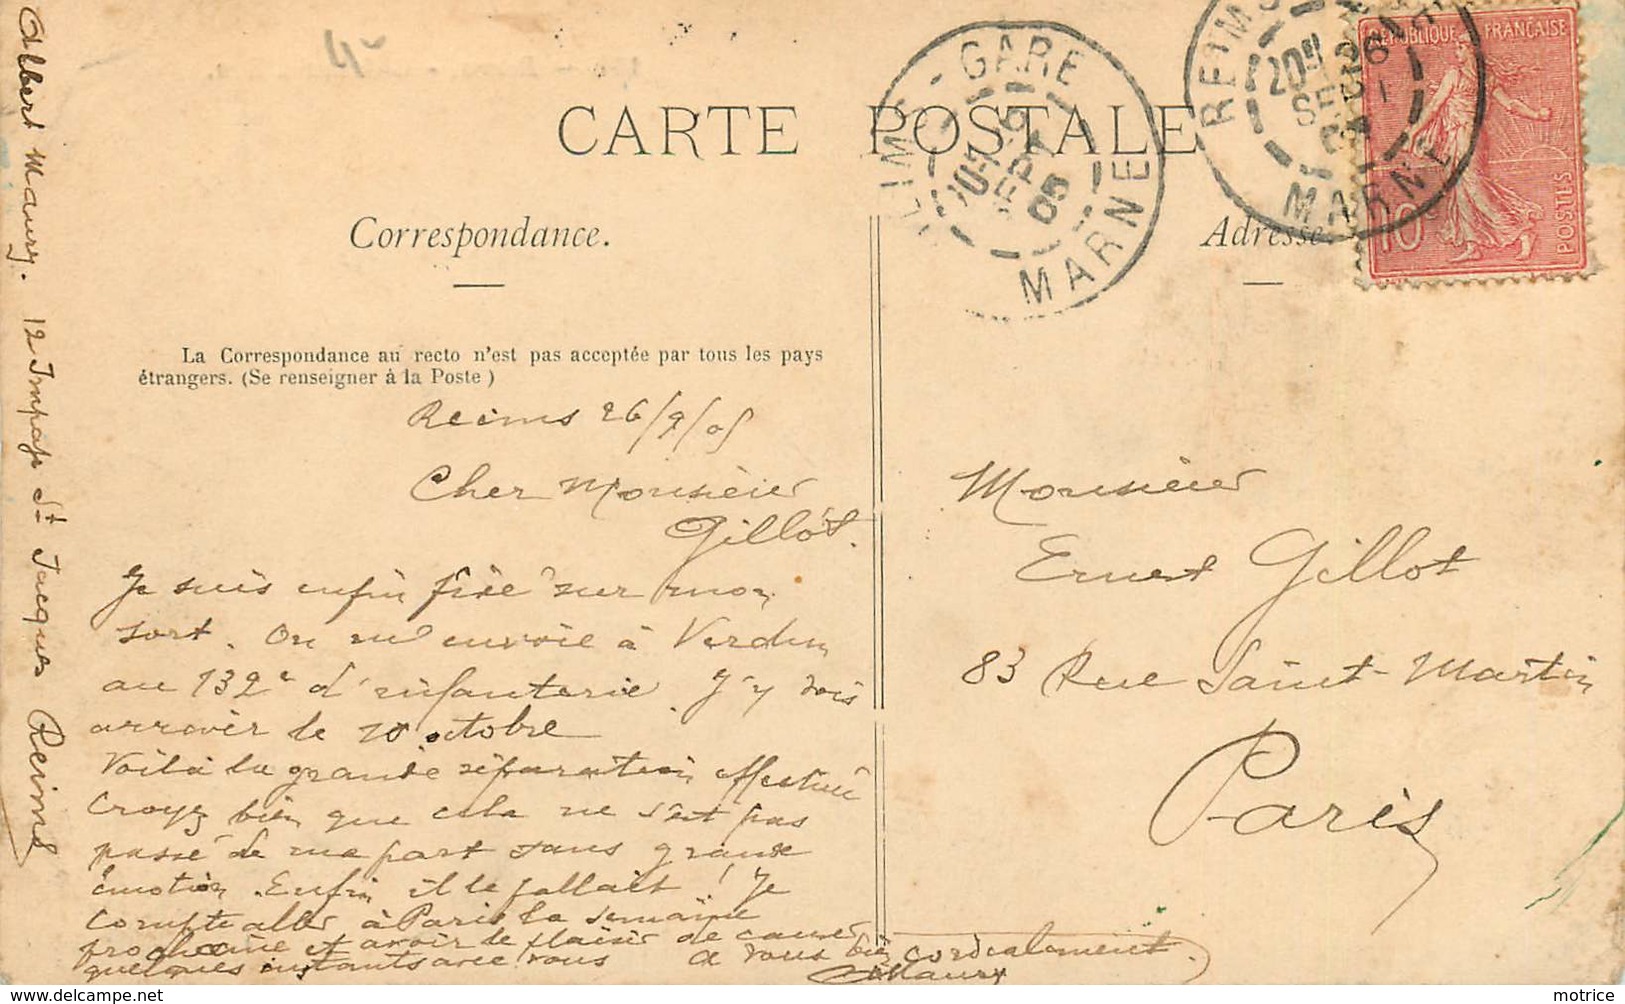 CARTE POSTALE
Correspondance.
Adresse
La Correspondance au recto n'est pas acceptée par tous les pays
étrangers. (Se renseigner à la Poste)
Reims 26/9/05
Cher Monsieur
Gillot.
Je suis enfin fixé sur mon
sort. On m'envoie à Verdun
au 132e d'infanterie. J'y dois
arriver le 10 octobre
Voilà la grande séparation effectuée
Croyez bien que cela ne s'est pas
passé de ma part sans grande
émotion. Enfin il le fallait! Je
compte aller à Paris la semaine
prochaine et avoir le plaisir de causer
quelques instants avec vous
A vous bien cordialement.
AMaury
Albert Maury. 12 Impasse St Jacques Reims
Monsieur
Ernest Gillot
83 Rue Saint-Martin
Paris
REIMS-GARE
MARNE
SEPT
05
REIMS
MARNE
RÉPUBLIQUE FRANÇAISE
10c
POSTES
motrice
www.delcampe.net